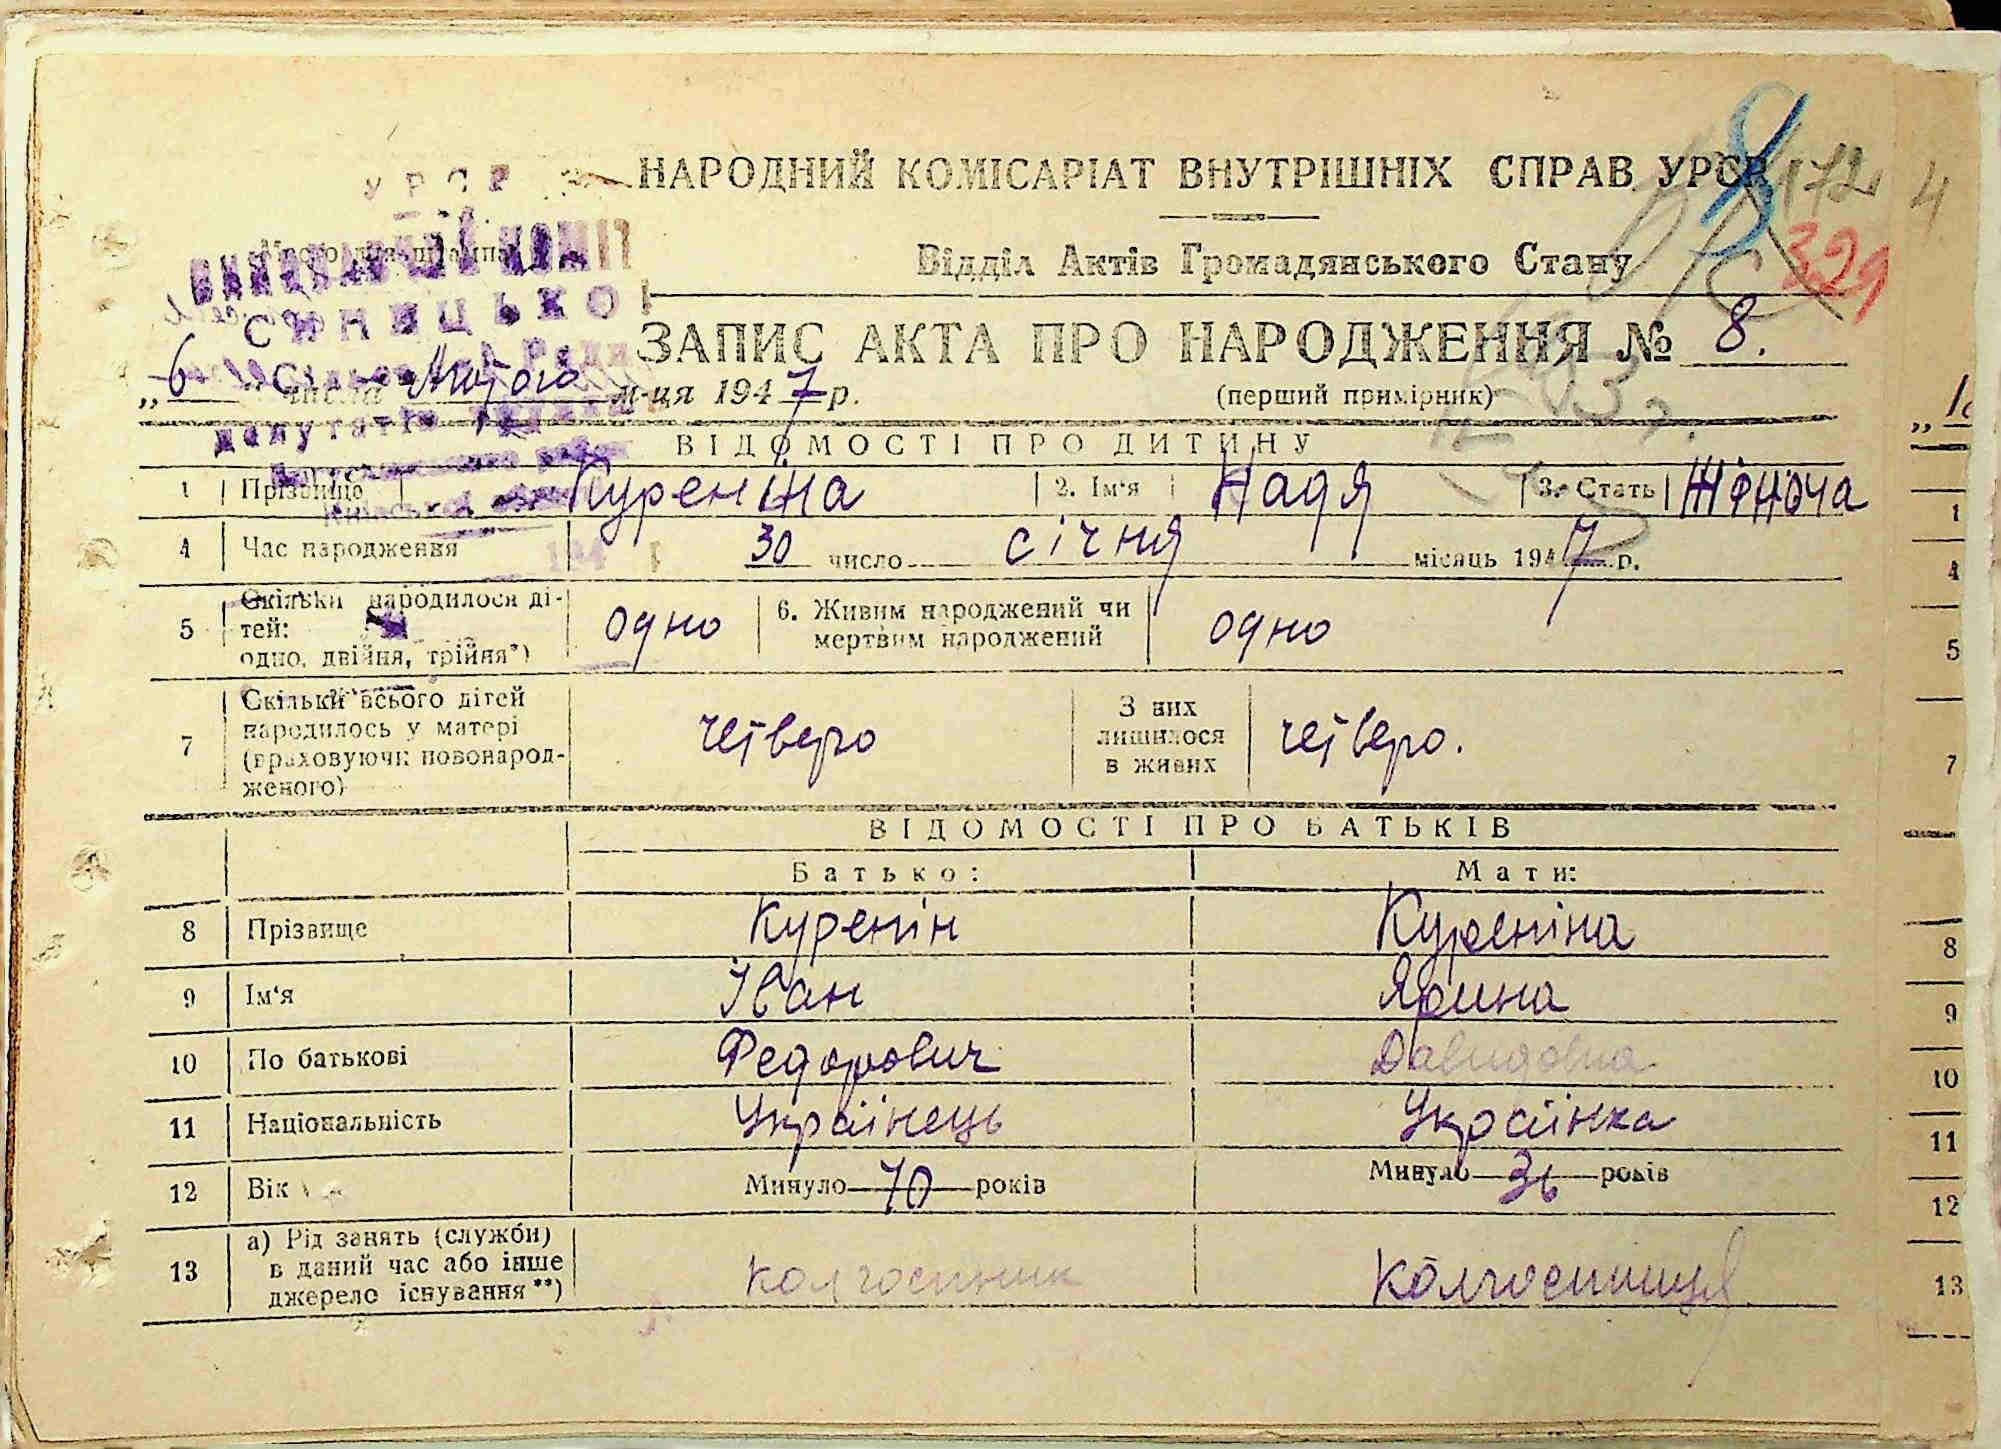 НАРОДНИЙ КОМІСАРІАТ ВНУТРІШНІХ СПРАВ УРСР
172 4
УРСР
Відділ Актів Громадянського Стану
329
Синицької
ЗАПИС АКТА ПРО НАРОДЖЕННЯ № 8.
„6" числа Лютого м-ця 1947 р.
(перший примірник)
депутатів
ВІДОМОСТІ ПРО ДИТИНУ
1 Прізвище Куреніна 2. Ім'я Надя 3. Стать Жіноча
4 Час народження 30 число січня місяць 1947 р.
5 Скільки народилося ді-
тей:
одно, двійня, трійня*) одно 6. Живим народжений чи
мертвим народжений одно
7 Скільки всього дітей
народилось у матері
(враховуючи новонарод-
женого) четверо З них
лишилося
в живих четверо.
ВІДОМОСТІ ПРО БАТЬКІВ
Батько: Мати:
8 Прізвище Куренін Куреніна
9 Ім'я Іван Ярина
10 По батькові Федорович Давидовна
11 Національність Українець Українка
12 Вік Минуло 40 років Минуло 36 років
13 а) Рід занять (служби)
в даний час або інше
джерело існування**) колгоспник колгоспниця
1
4
5
7
8
9
10
11
12
13